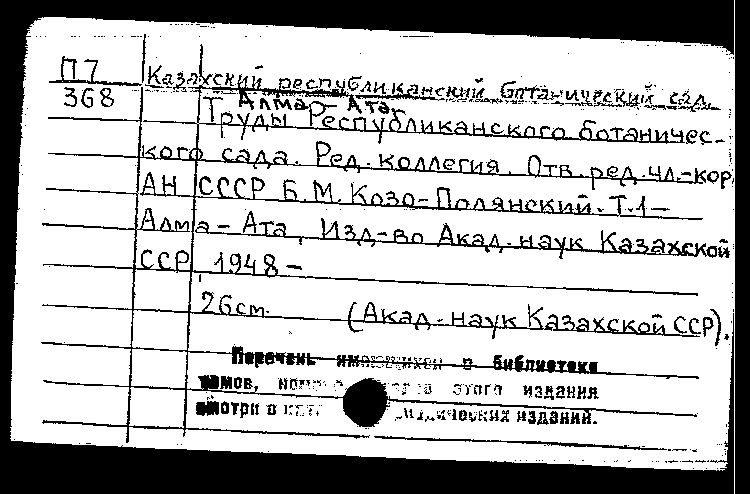 П7 Казахский республиканский ботанический сад.
368 Алма-Ата.
Труды Республиканского ботаничес-
кого сада. Ред. коллегия. Отв. ред. чл.-кор.
АН СССР Б.М. Козо-Полянский. Т.1-
Алма-Ата, Изд-во Акад. наук Казахской
ССР, 1948-
26см. (Акад. наук Казахской ССР).
Перечень имеющихся в библиотеке
томов, этого издания
смотри в изданий.